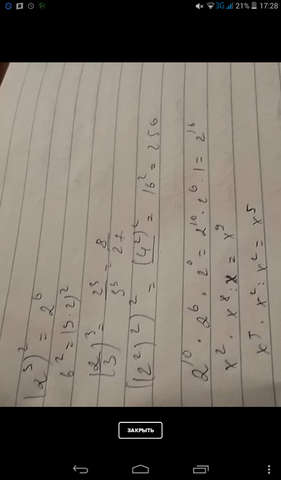 3G 21% 17:28
(2³)² = 2⁶
6² = (3·2)²
(2/3)³ = 2³/3³ = 8/27
((2²)²)² = (4²)² = 16² = 256
2¹⁰ · 2⁶ · 2⁰ = 2¹⁰ · 2⁶ · 1 = 2¹⁶
x² · x⁸ : x = x⁹
x⁵ · x² : x² = x⁵
ЗАКРЫТЬ